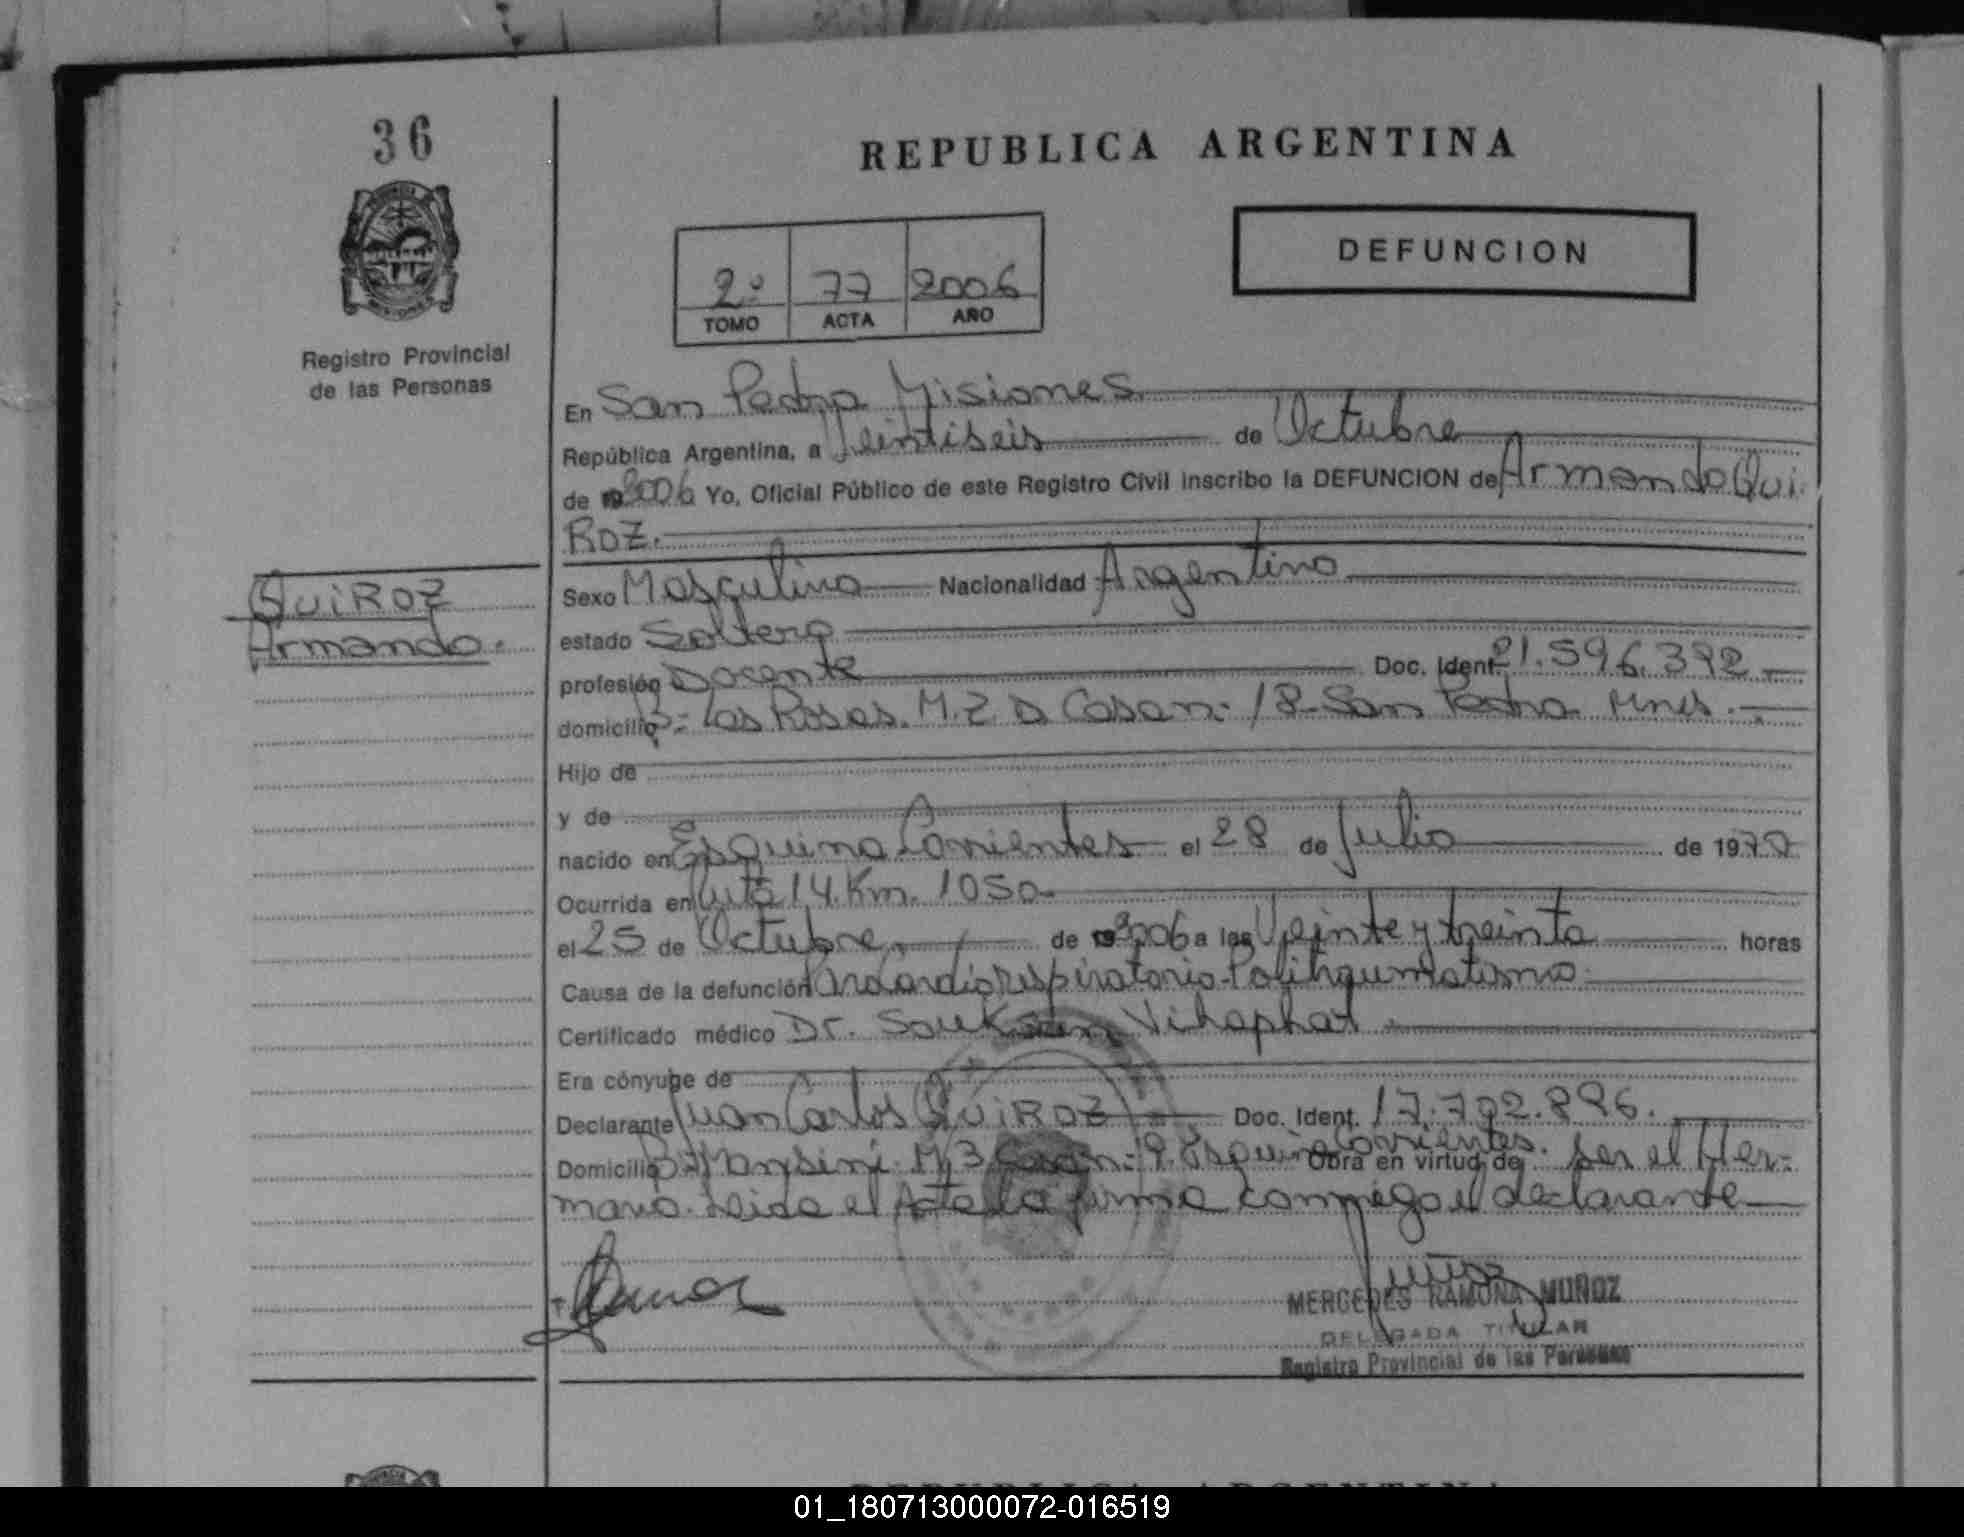 36
REPUBLICA ARGENTINA
DEFUNCION
2º 77 2006
TOMO ACTA AÑO
Registro Provincial
de las Personas
En San Pedro Misiones
República Argentina, a Veintiseis de Octubre
de 2006 Yo, Oficial Público de este Registro Civil inscribo la DEFUNCION de Armando Qui
Roz.
QuiRoz
Armando.
Sexo Masculino Nacionalidad Argentino
estado Soltero
profesión Docente Doc. Ident. 21.596.392
domicilio Bº Las Rosas. M.Z D Casa nº 18 San Pedro Mnes.
Hijo de
y de
nacido en Esquina Corrientes el 28 de Julio de 1970
Ocurrida en Ruta 14. Km. 1050
el 25 de Octubre de 2006 a las Veinte y treinta horas
Causa de la defunción Paro cardio respiratorio-Politraumatismo
Certificado médico Dr. Souksan Vihaphat
Era cónyuge de
Declarante Juan Carlos QuiROZ Doc. Ident. 17.702.896.
Domicilio Bº Mansini. M, 3 Casa nº 9. Esquina Corrientes. Obra en virtud de ser el Her-
mano. Leida el Acta la firma conmigo el declarante
MERCEDES RAMONA MUÑOZ
DELEGADA TITULAR
Registro Provincial de las Personas
REPUBLICA ARGENTINA
01_180713000072-016519